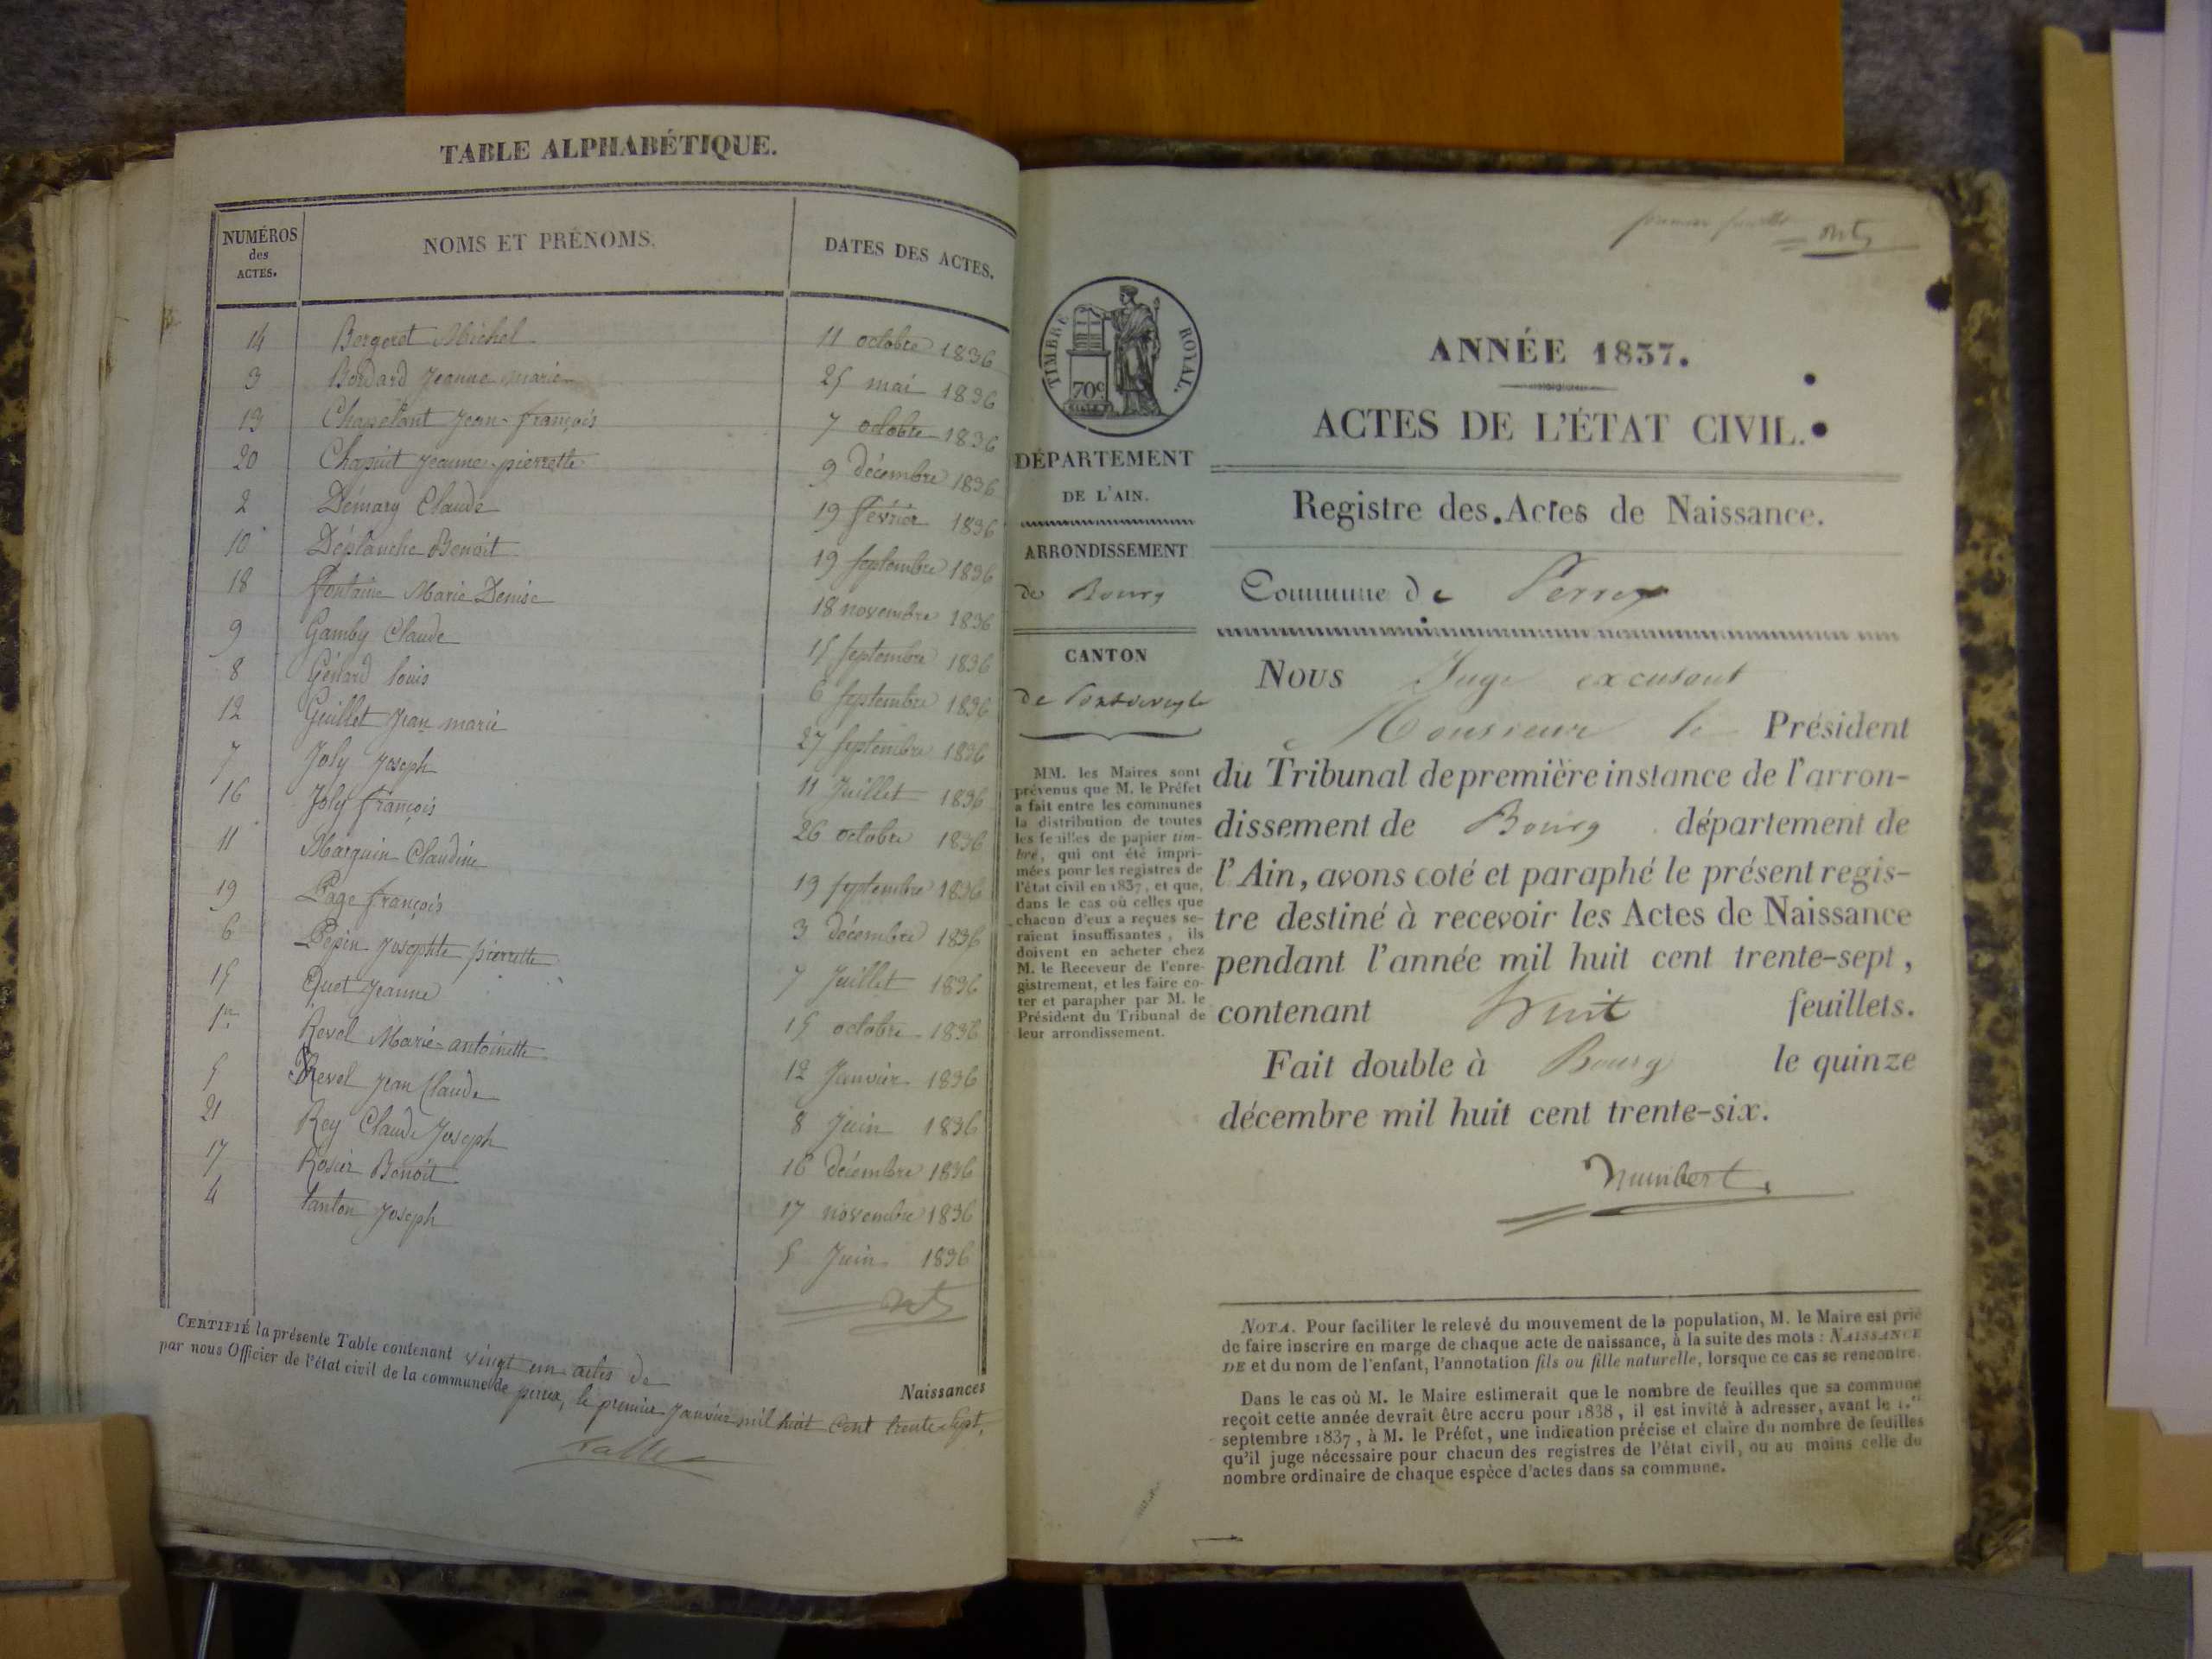 TABLE ALPHABÉTIQUE.
NUMÉROS des ACTES. NOMS ET PRÉNOMS. DATES DES ACTES.
14 Bergeret Michel 11 octobre 1836
3 Bordard Jeanne marie 25 mai 1836
13 Chapelant Jean-françois 7 octobre 1836
20 Chapuit Jeanne-pierrette 9 décembre 1836
2 Démary Claude 19 février 1836
10 Déplanche Benoit 19 septembre 1836
18 fontaine Marie Denise 18 novembre 1836
9 Gamby Claude 15 septembre 1836
8 Gérard louis 6 septembre 1836
12 Guillet Jean marie 27 septembre 1836
7 Joly Joseph 11 Juillet 1836
16 Joly françois 26 octobre 1836
11 Marguin Claudine 19 septembre 1836
19 Page françois 3 décembre 1836
6 Pepin Josephte pierrette 7 Juillet 1836
15 Quet Jeanne 15 octobre 1836
1er Revel Marie-antoinette 12 Janvier 1836
5 Revel Jean Claude 8 Juin 1836
21 Rey Claude Joseph 16 décembre 1836
17 Rosier Benoit 17 novembre 1836
4 tanton Joseph 5 Juin 1836
CERTIFIÉ la présente Table contenant vingt un actes de Naissances
par nous Officier de l'état civil de la commune de perrex, le premier Janvier mil huit Cent trente-sept.
TIMBRE ROYAL.
70c
DÉPARTEMENT
DE L'AIN.
ARRONDISSEMENT
de Bourg
CANTON
de Pontdeveyle
MM. les Maires sont
prévenus que M. le Préfet
a fait entre les communes
la distribution de toutes
les feuilles de papier tim-
bré, qui ont été impri-
mées pour les registres de
l'état civil en 1837, et que,
dans le cas où celles que
chacun d'eux a reçues se-
raient insuffisantes, ils
doivent en acheter chez
M. le Receveur de l'enre-
gistrement, et les faire co-
ter et parapher par M. le
Président du Tribunal de
leur arrondissement.
premier feuillet
ANNÉE 1837.
ACTES DE L'ÉTAT CIVIL.
Registre des Actes de Naissance.
Commune de Perrex
NOUS Juge excusant
Monsieur le Président
du Tribunal de première instance de l'arron-
dissement de Bourg département de
l'Ain, avons coté et paraphé le présent regis-
tre destiné à recevoir les Actes de Naissance
pendant l'année mil huit cent trente-sept,
contenant huit feuillets.
Fait double à Bourg le quinze
décembre mil huit cent trente-six.
NOTA. Pour faciliter le relevé du mouvement de la population, M. le Maire est prié
de faire inscrire en marge de chaque acte de naissance, à la suite des mots : NAISSANCE
DE et du nom de l'enfant, l'annotation fils ou fille naturelle, lorsque ce cas se rencontre.
Dans le cas où M. le Maire estimerait que le nombre de feuilles que sa commune
reçoit cette année devrait être accru pour 1838, il est invité à adresser, avant le 1.er
septembre 1837, à M. le Préfet, une indication précise et claire du nombre de feuilles
qu'il juge nécessaire pour chacun des registres de l'état civil, ou au moins celle du
nombre ordinaire de chaque espèce d'actes dans sa commune.